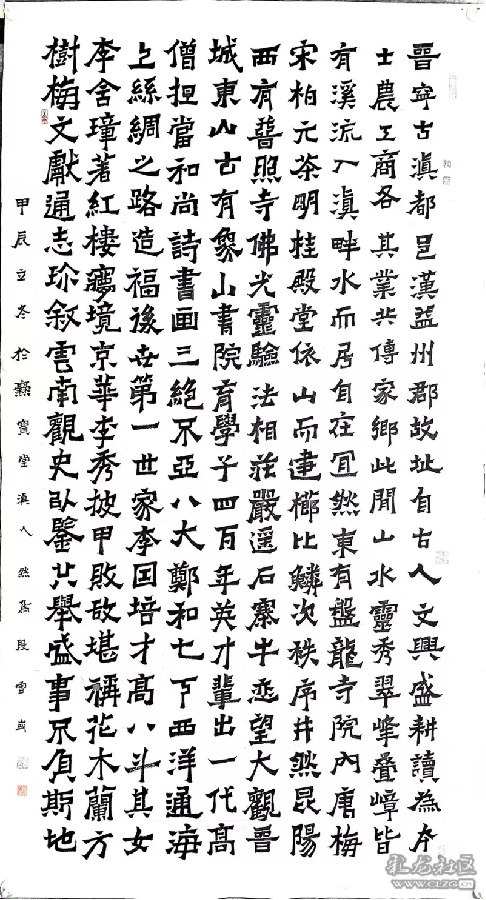 晉寧古滇都邑漢益州郡故址自古人文興盛耕讀為本
士農工商各其業共傳家鄉此間山水靈秀翠峰疊嶂皆
有溪流入滇畔水而居自在宜然東有盤龍寺院內唐梅
宋柏元茶明桂殿堂依山而建櫛比鱗次秩序井然昆陽
西有普照寺佛光靈驗法相莊嚴遥石寨牛恋望大觀晉
城東山古有象山書院育學子四百年英才輩出一代高
僧担當和尚詩書画三絶不亞八大鄭和七下西洋通海
上絲綢之路造福後世第一世家李囯培才高八斗其女
李舍璋著紅樓夢境京華李秀披甲敗敌堪稱花木蘭方
樹梅文獻通志珎叙雲南觀史臥鑒共舉盛事不負斯地
甲辰立冬於 寶堂滇人然 段雪
礼龙社区
WWW.CLZG.CN